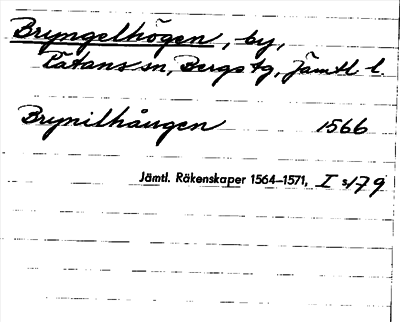 Bryngelhögen, by,
Råtans sn, Bergs tg, Jämtl l.
Brynilhåugen 1566
Jämtl. Räkenskaper 1564–1571, I s 179